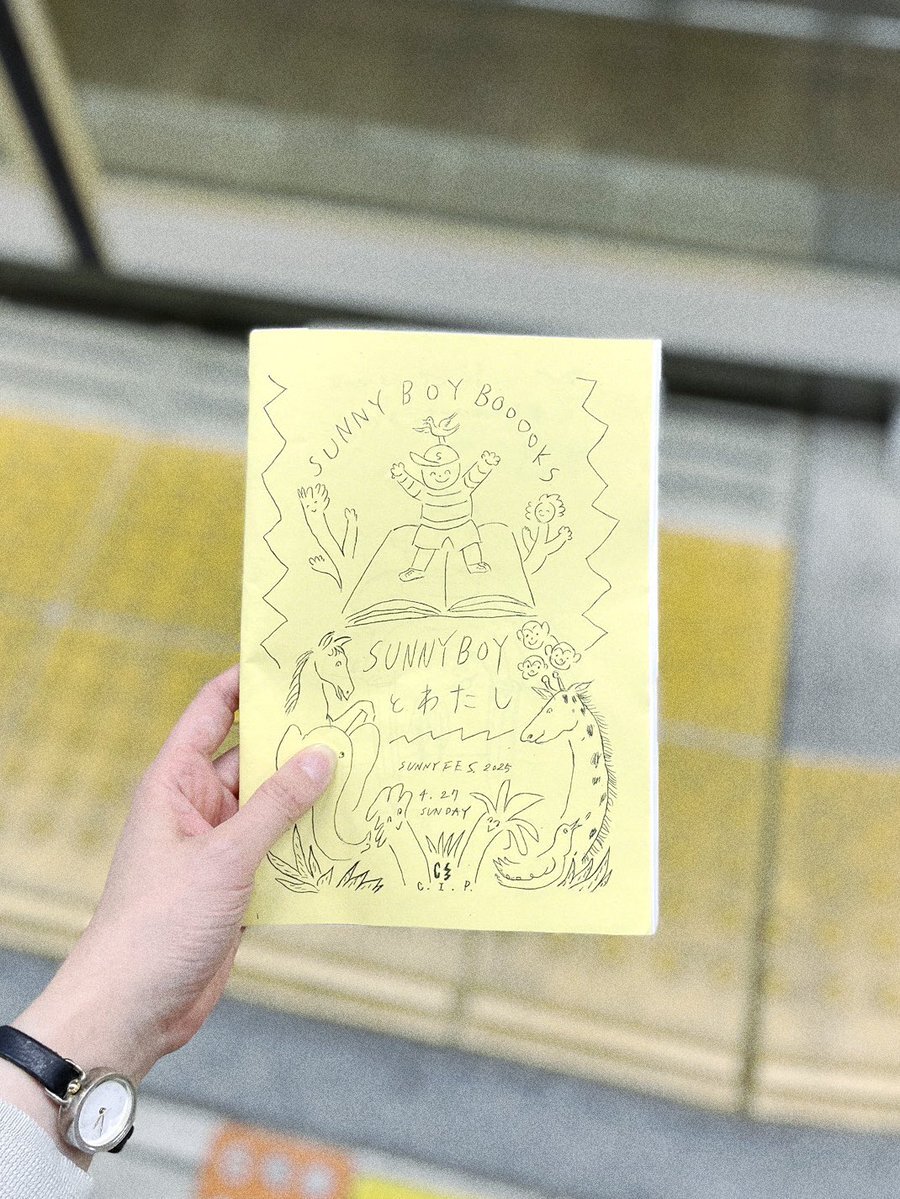 SUNNY BOY BOOOOKS
S
SUNNYBOY
とわたし
SUNNYFES. 2025
4.27
SUNDAY
C.I.P.